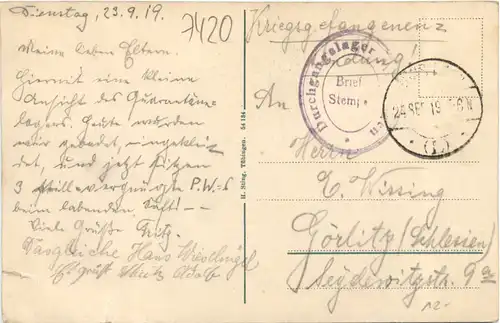 Dienstag, 23.9.19.
7420
Meine lieben Eltern.
Hiermit eine kleine
Ansicht des Quarantäne-
lagers. Heute wurden
wir gebadet, eingeklei-
det, und jetzt sitzen
3 stillevergnügte P.W.-s
beim labenden Saft! –
Viele Grüße Fritz.
Desgleiche Hans
Es grüßt Adolf
H. Sting, Tübingen. 54 184
Kriegsgefangenen-
sendung!
Durchgangslager
Brief
Stemp
24 SEP 19
An
Herrn
E. Wissing
Görlitz (Schlesien)
Seydewitzstr. 9a